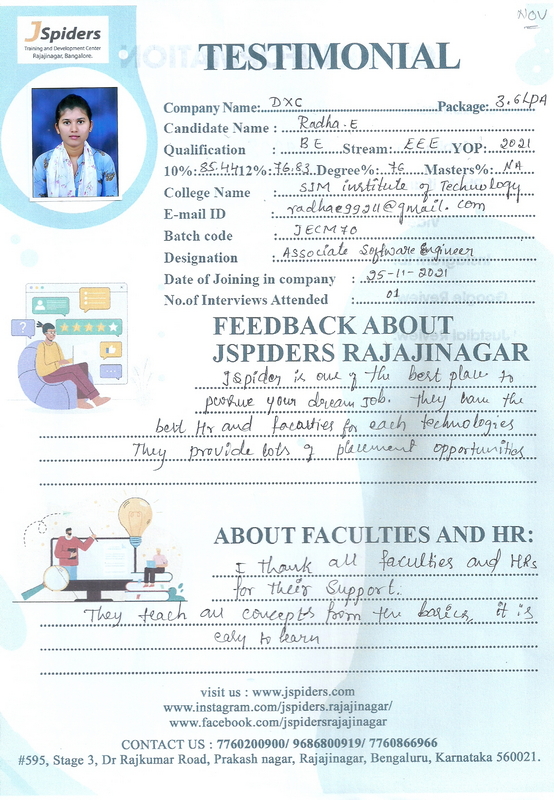 NOV
JSpiders
Training and Development Center
Rajajinagar, Bangalore.
TESTIMONIAL
Company Name: DXC Package: 3.6LPA
Candidate Name : Radha.E
Qualification : BE Stream: EEE YOP: 2021
10%: 85.44 12%: 76.83 Degree%: 76 Masters%: NA
College Name : SJM institute of Technology
E-mail ID : radhae99211@gmail.com
Batch code : JECM70
Designation : Associate Software Engineer
Date of Joining in company : 25-11-2021
No.of Interviews Attended : 01
FEEDBACK ABOUT
JSPIDERS RAJAJINAGAR
JSpider is one of the best place to
pursue your dream Job. they have the
best Hr and faculties for each technologies
They provide lots of placement opportunities
ABOUT FACULTIES AND HR:
I thank all faculties and HRs
for their Support.
They teach all concepts from the basics, it is
easy to learn
visit us : www.jspiders.com
www.instagram.com/jspiders.rajajinagar/
www.facebook.com/jspidersrajajinagar
CONTACT US : 7760200900/ 9686800919/ 7760866966
#595, Stage 3, Dr Rajkumar Road, Prakash nagar, Rajajinagar, Bengaluru, Karnataka 560021.